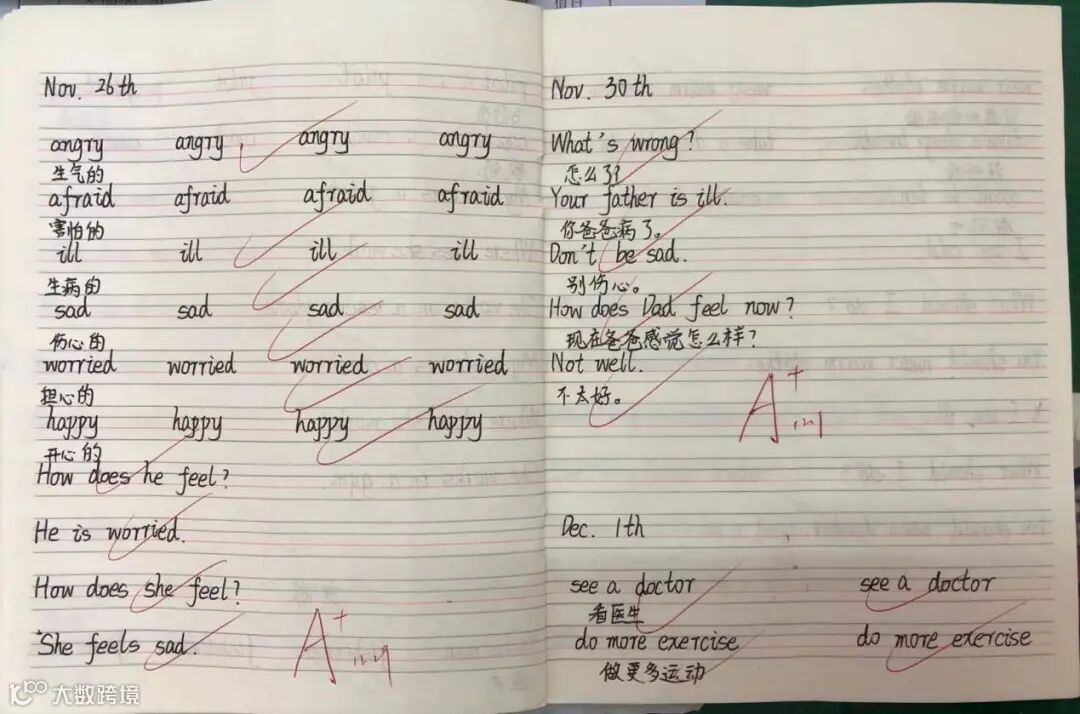 Nov. 26th
angry angry angry angry
生气的
afraid afraid afraid afraid
害怕的
ill ill ill ill
生病的
sad sad sad sad
伤心的
worried worried worried worried
担心的
happy happy happy happy
开心的
How does he feel?
He is worried.
How does she feel?
She feels sad.
A+
11.29
Nov. 30th
What's wrong?
怎么了?
Your father is ill.
你爸爸病了。
Don't be sad.
别伤心。
How does Dad feel now?
现在爸爸感觉怎么样?
Not well.
不太好。
A+
Dec. 1th
see a doctor see a doctor
看医生
do more exercise do more exercise
做更多运动
大数跨境